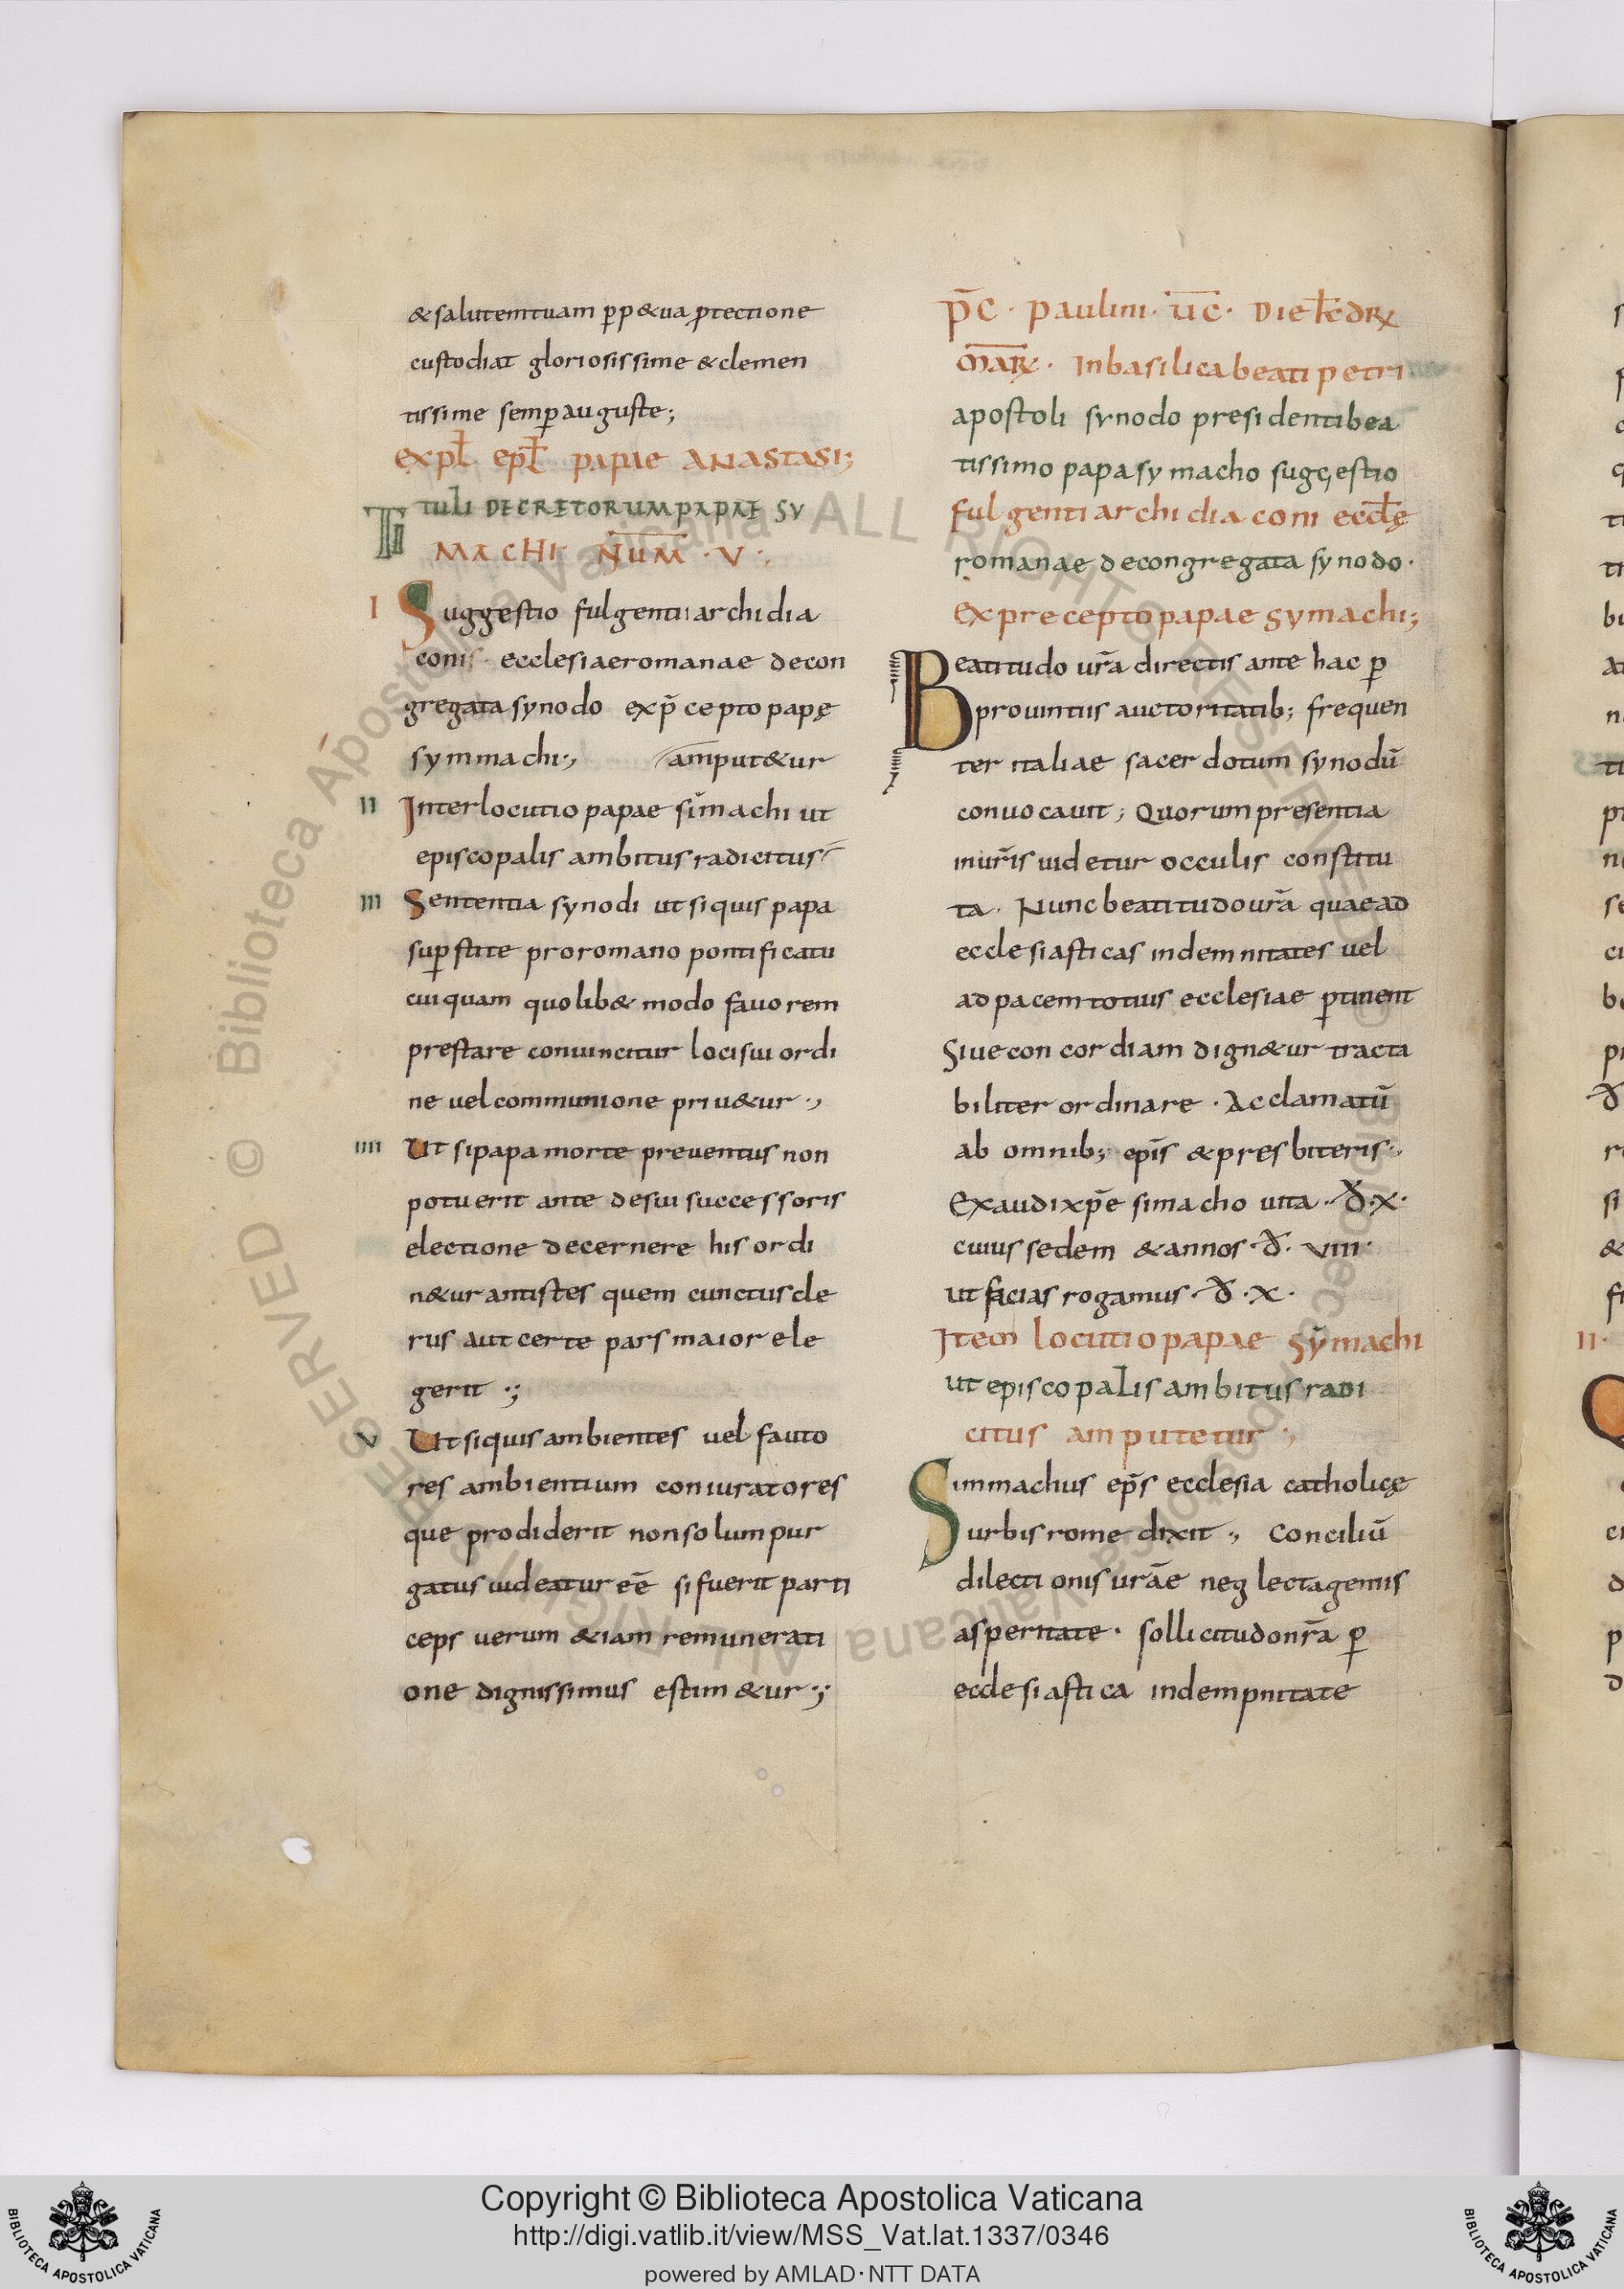 & salutem tuam p̲p&ua ꝓtectione
custodiat gloriosissime & clemen
tissime semꝑ auguste;
expł epł papae ANASTASI;
TItuli DECRETORUM PAPAE SY
MACHI· NUM̅ · V ·
I Suggestio fulgentii archidia
conis ecclesiae romanae de con
gregata synodo exp̄cepto papę
symmachi·, amput&ur
II Interlocutio papae sim̄achi ut
episcopalis ambitus radicitus
III Sententia synodi ut si quis papa
suꝑstite pro romano pontificatu
cuiquam quolib& modo fauorem
prestare conuincitur loci sui ordi
ne uel communione priu&ur·,
IIII Ut si papa morte preuentus non
potuerit ante de sui successoris
electione decernere his ordi
n&ur antistes quem cunctus cle
rus aut certe pars maior ele
gerit ·;
V Ut si quis ambientes uel fauto
res ambientium coniuratores
que prodiderit non solum pur
gatus uideatur eē si fuerit parti
ceps uerum &iam remunerati
one dignissimus estim&ur·;
p̄c · paulini · ūc · Die kł̄ DRƷ
M̅AR̅· In basilica beati petri
apostoli synodo presidenti bea
tissimo papa symacho suggestio
fulgenti archidiaconi eccłę
romanae de congregata synodo·
Ex precepto papae symachi;
Beatitudo ur̄a directis ante hac ꝑ
prouintiis auctoritatib; frequen
ter italiae sacerdotum synodū
conuocauit; Quorum presentia
in ur̄is uidetur occulis constitu
ta. Nunc beatitudo ur̄a quae ad
ecclesiasticas indemnitates uel
ad pacem totius ecclesiae ꝑtinent
Siue concordiam dign&ur tracta
biliter ordinare · Acclamatū
ab omnib; ep̄is & presbiteris·,
Exaudi xp̄e simacho uita · đ·x·
cuius sedem & annos · đ· VIIII·
ut facias rogamus· đ ·x·
Item locutio papae sȳmachi
ut episcopalis ambitus radi
citus amputetur ·,
Simmachus ep̄s ecclesia catholicę
urbis rome dixit ·, Conciliū
dilectionis ur̄ae neglecta gemis
asperitate · sollicitudo nr̄a ꝑ
ecclesiastica indempnitate
II·
Copyright © Biblioteca Apostolica Vaticana
http://digi.vatlib.it/view/MSS_Vat.lat.1337/0346
powered by AMLAD·NTT DATA
BIBLIOTECA APOSTOLICA VATICANA
BIBLIOTECA APOSTOLICA VATICANA
© Biblioteca Apostolica Vaticana ALL RIGHTS RESERVED © Biblioteca Apostolica Vaticana ALL RIGHTS RESERVED